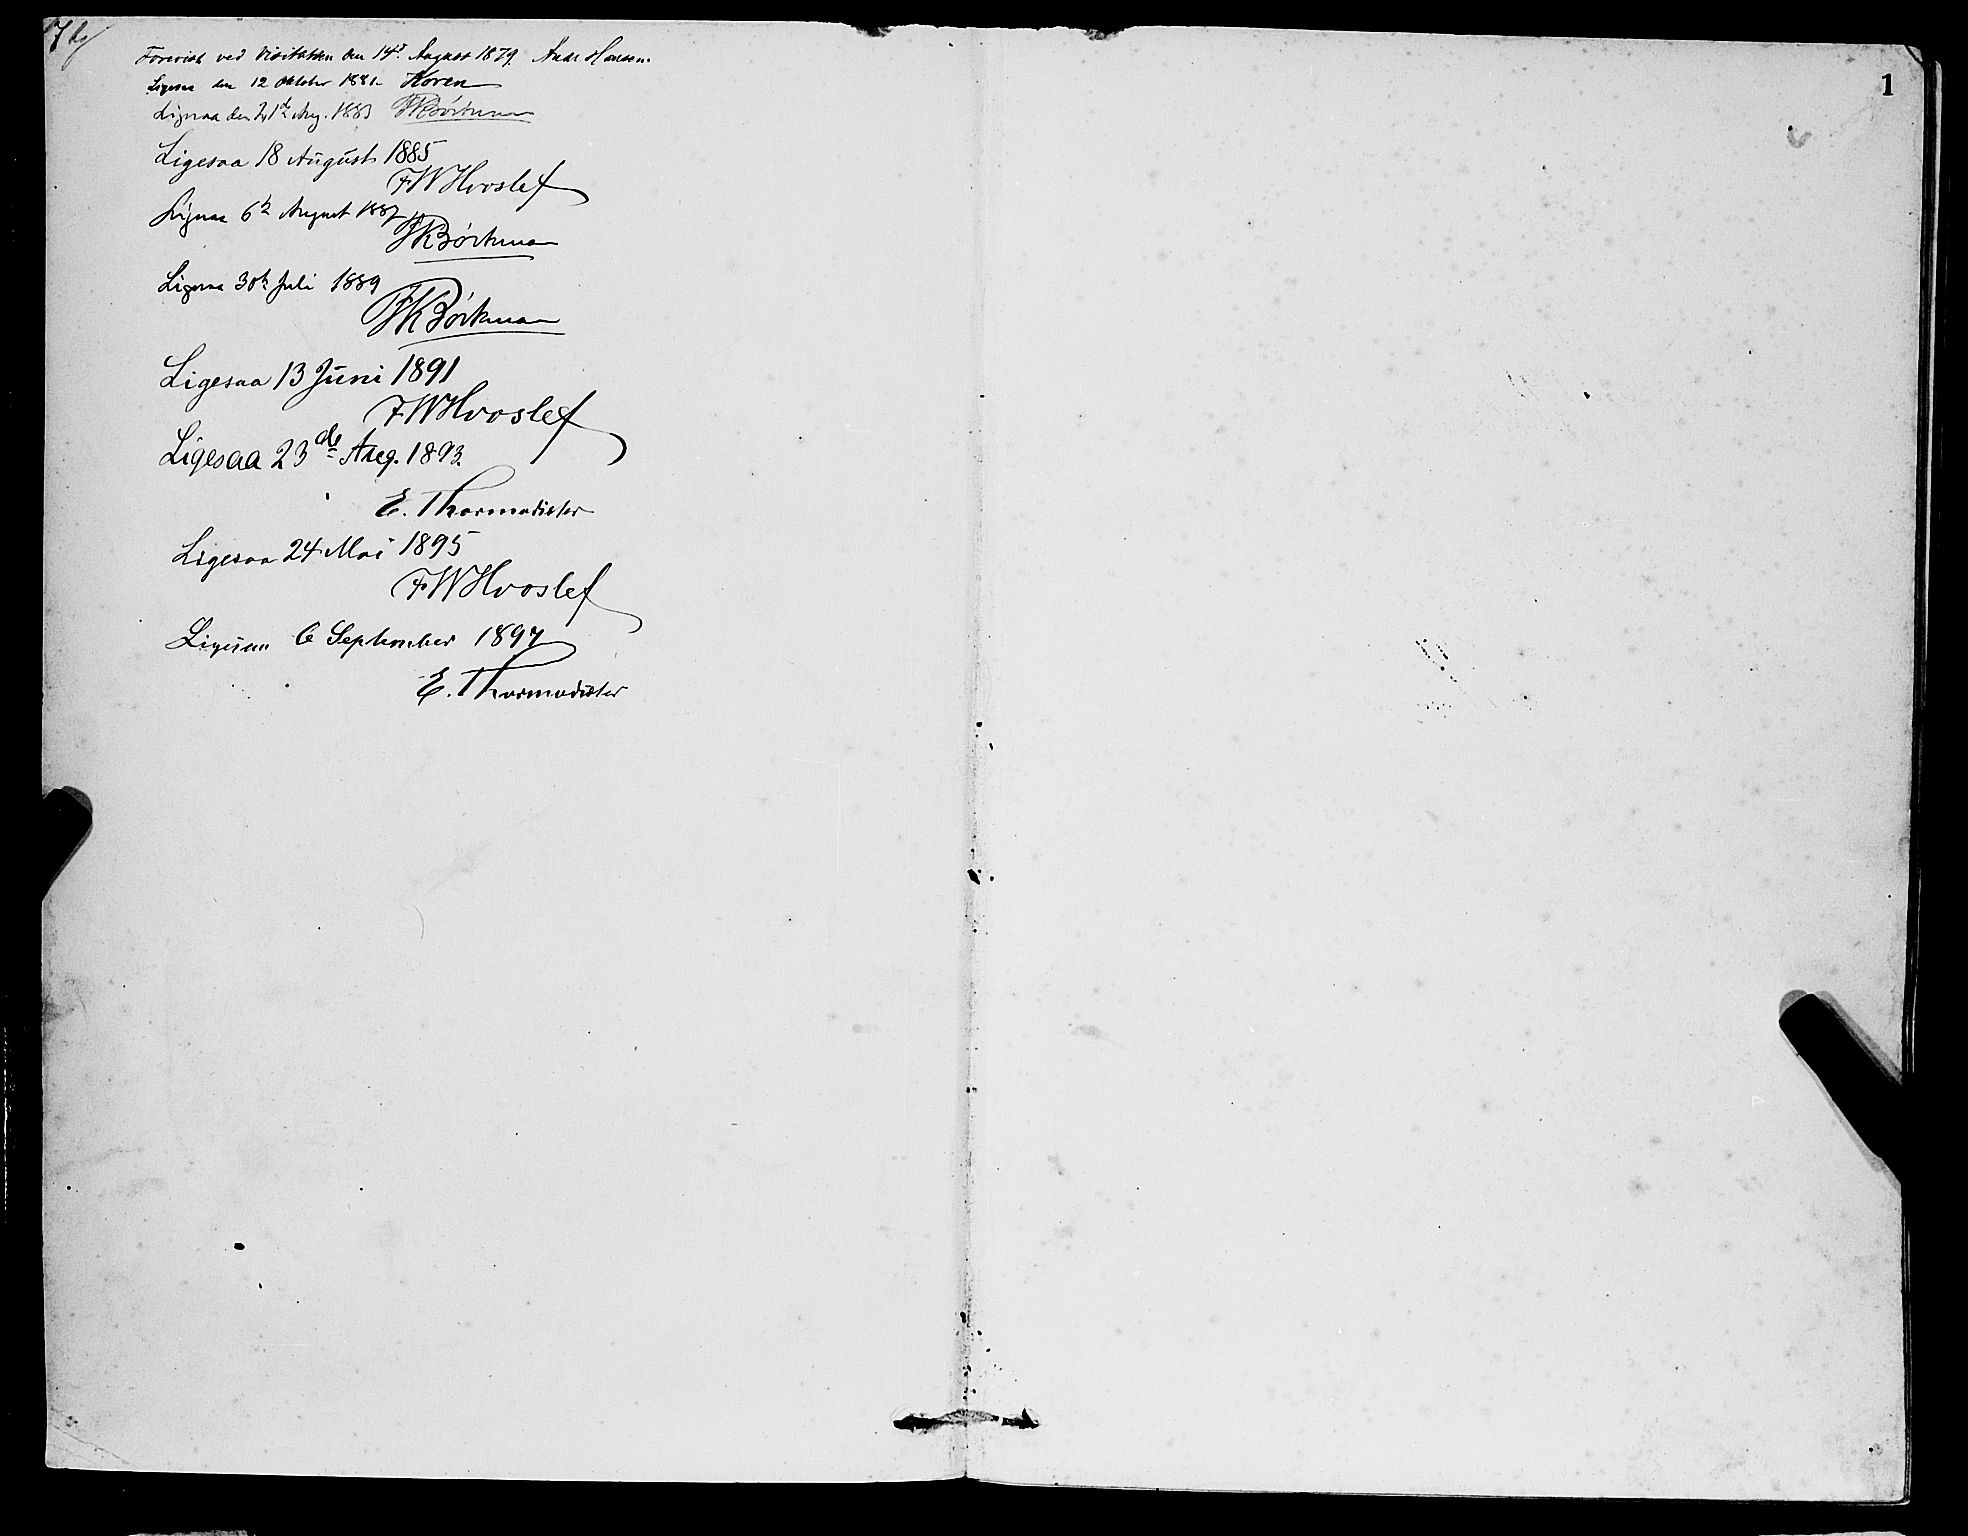 Forevist ved Visitatsen den 14de August 1879. Andr Hansen.
Ligesaa den 12 Oktober 1881. Koren
Ligesaa den 21de Aug. 1883 JKBörkman
Ligesaa 18 August 1885
FWHvoslef
Ligesaa 6te August 1887
JKBörkman
Ligesaa 30te Juli 1889
JKBörkman
Ligesaa 13 Juni 1891
FWHvoslef
Ligesaa 23de Aug. 1893.
E. Thormodsæter
Ligesaa 24 Mai 1895
FWHvoslef
Ligesaa 6 September 1897
E. Thormodsæter
1